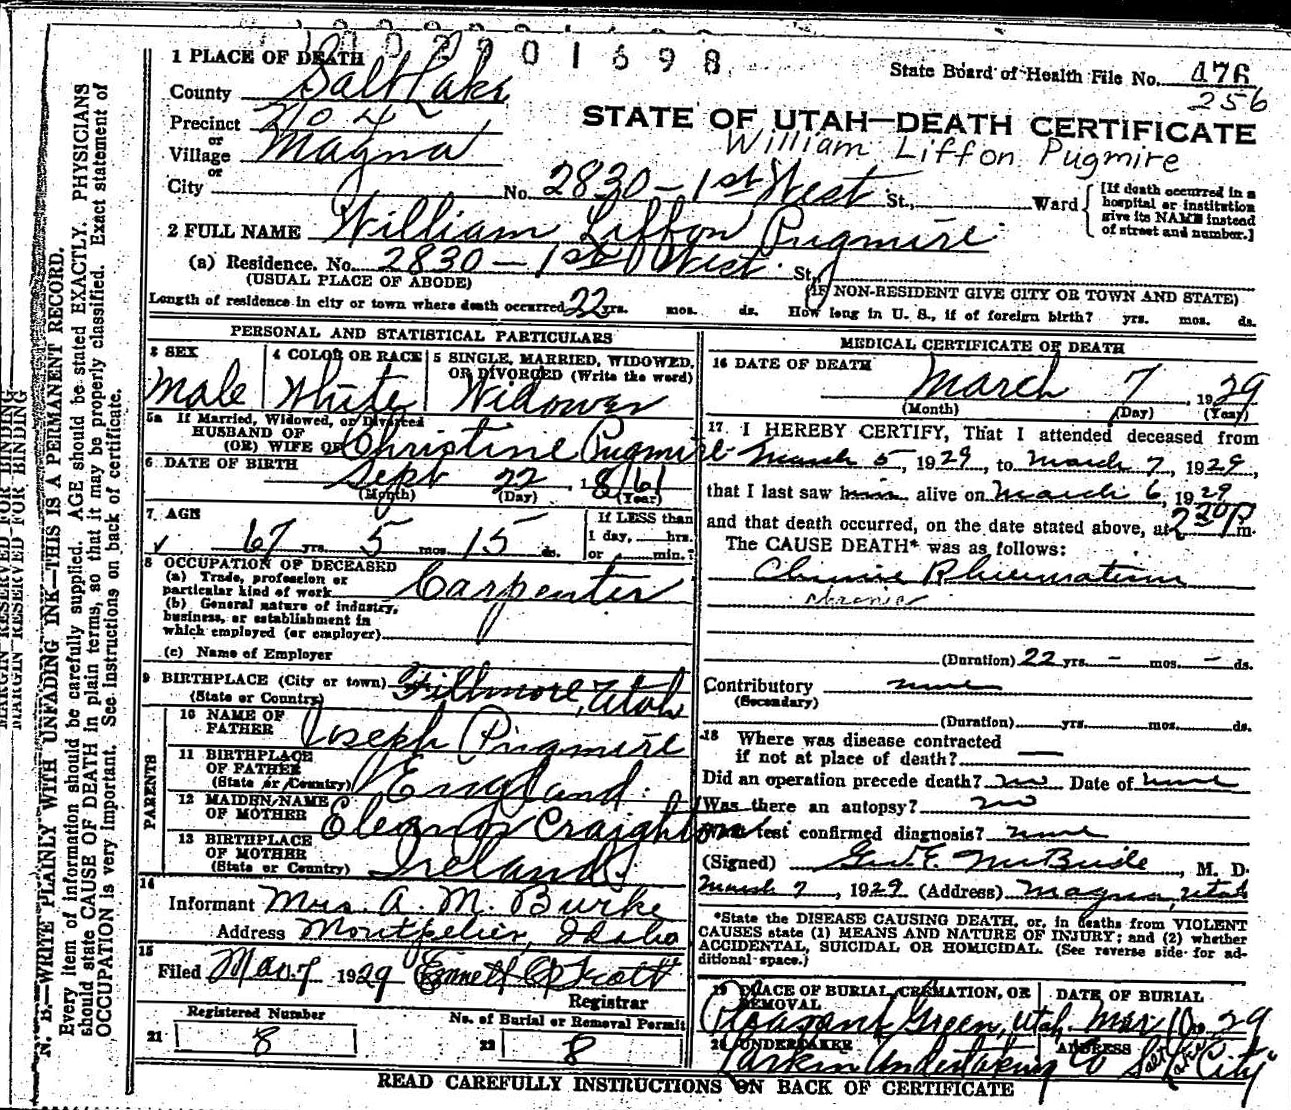 2901698
1 PLACE OF DEATH
State Board of Health File No. 476
256
County Salt Lake
STATE OF UTAH—DEATH CERTIFICATE
Precinct
or
William Liffon Pugmire
Village Magna
or
City No. 2830 - 1st West St., Ward
[If death occurred in a hospital or institution give its NAME instead of street and number.]
2 FULL NAME William Liffon Pugmire
(a) Residence. No. 2830 - 1st West St.,
(USUAL PLACE OF ABODE) (IF NON-RESIDENT GIVE CITY OR TOWN AND STATE)
Length of residence in city or town where death occurred 22 yrs. mos. ds. How long in U. S., if of foreign birth? yrs. mos. ds.
PERSONAL AND STATISTICAL PARTICULARS
3 SEX Male
4 COLOR OR RACE White
5 SINGLE, MARRIED, WIDOWED, OR DIVORCED (Write the word) Widower
5a If Married, Widowed, or Divorced
HUSBAND OF
(OR) WIFE OF Christine Pugmire
6 DATE OF BIRTH Sept 22, 1861
(Month) (Day) (Year)
7 AGE
67 yrs. 5 mos. 15 ds.
If LESS than
1 day, hrs.
or min.?
8 OCCUPATION OF DECEASED
(a) Trade, profession or
particular kind of work Carpenter
(b) General nature of industry,
business, or establishment in
which employed (or employer)
(c) Name of Employer
9 BIRTHPLACE (City or town) Fillmore, Utah
(State or Country)
PARENTS
10 NAME OF
FATHER Joseph Pugmire
11 BIRTHPLACE
OF FATHER England
(State or Country)
12 MAIDEN NAME
OF MOTHER Eleanor Craighton
13 BIRTHPLACE
OF MOTHER Ireland
(State or Country)
14
Informant Mrs. A. M. Burke
Address Montpelier, Idaho
15
Filed Mar 7 1929 Emmett Scott
Registrar
Registered Number No. of Burial or Removal Permit
21 8 22 8
MEDICAL CERTIFICATE OF DEATH
16 DATE OF DEATH March 7, 1929
(Month) (Day) (Year)
17. I HEREBY CERTIFY, That I attended deceased from
March 5, 1929, to March 7, 1929,
that I last saw him alive on March 6, 1929
and that death occurred, on the date stated above, at 2 30 P m.
The CAUSE DEATH* was as follows:
Chronic Rheumatism
chronic
(Duration) 22 yrs. - mos. - ds.
Contributory none
(Secondary)
(Duration) yrs. mos. ds.
18 Where was disease contracted
if not at place of death? —
Did an operation precede death? no Date of none
Was there an autopsy? no
test confirmed diagnosis? none
(Signed) Geo. E. McBride, M. D.
March 7, 1929 (Address) Magna, Utah
*State the DISEASE CAUSING DEATH, or, in deaths from VIOLENT
CAUSES state (1) MEANS AND NATURE OF INJURY; and (2) whether
ACCIDENTAL, SUICIDAL OR HOMICIDAL. (See reverse side for ad-
ditional space.)
19 PLACE OF BURIAL, CREMATION, OR
REMOVAL
Pleasant Green, Utah
DATE OF BURIAL
Mar 10, 29
20 UNDERTAKER
Larkin Undertaking Co
ADDRESS
Salt Lake City
READ CAREFULLY INSTRUCTIONS ON BACK OF CERTIFICATE
MARGIN RESERVED FOR BINDING
MARGIN RESERVED FOR BINDING
N. B.—WRITE PLAINLY WITH UNFADING INK—THIS IS A PERMANENT RECORD.
Every item of information should be carefully supplied. AGE should be stated EXACTLY. PHYSICIANS
should state CAUSE OF DEATH in plain terms, so that it may be properly classified. Exact statement of
OCCUPATION is very important. See instructions on back of certificate.